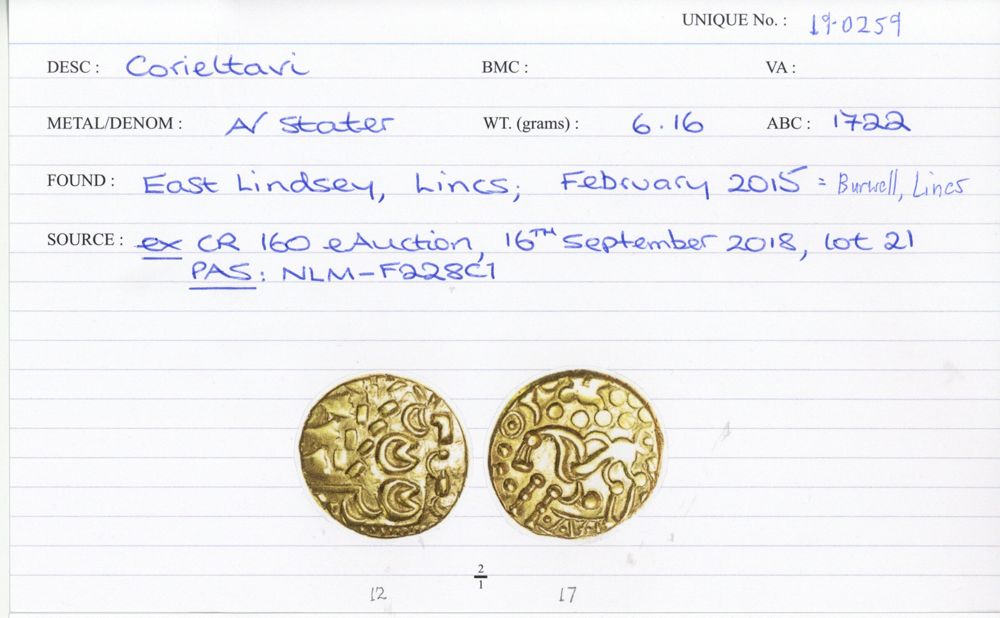 UNIQUE No. : 19-0259
DESC : Corieltavi BMC : VA :
METAL/DENOM : AV Stater WT. (grams) : 6.16 ABC : 1722
FOUND : East Lindsey, Lincs; February 2015 = Burwell, Lincs
SOURCE : ex CR 160 eAuction, 16TH September 2018, lot 21
PAS: NLM-F228C1
2
1
12 17